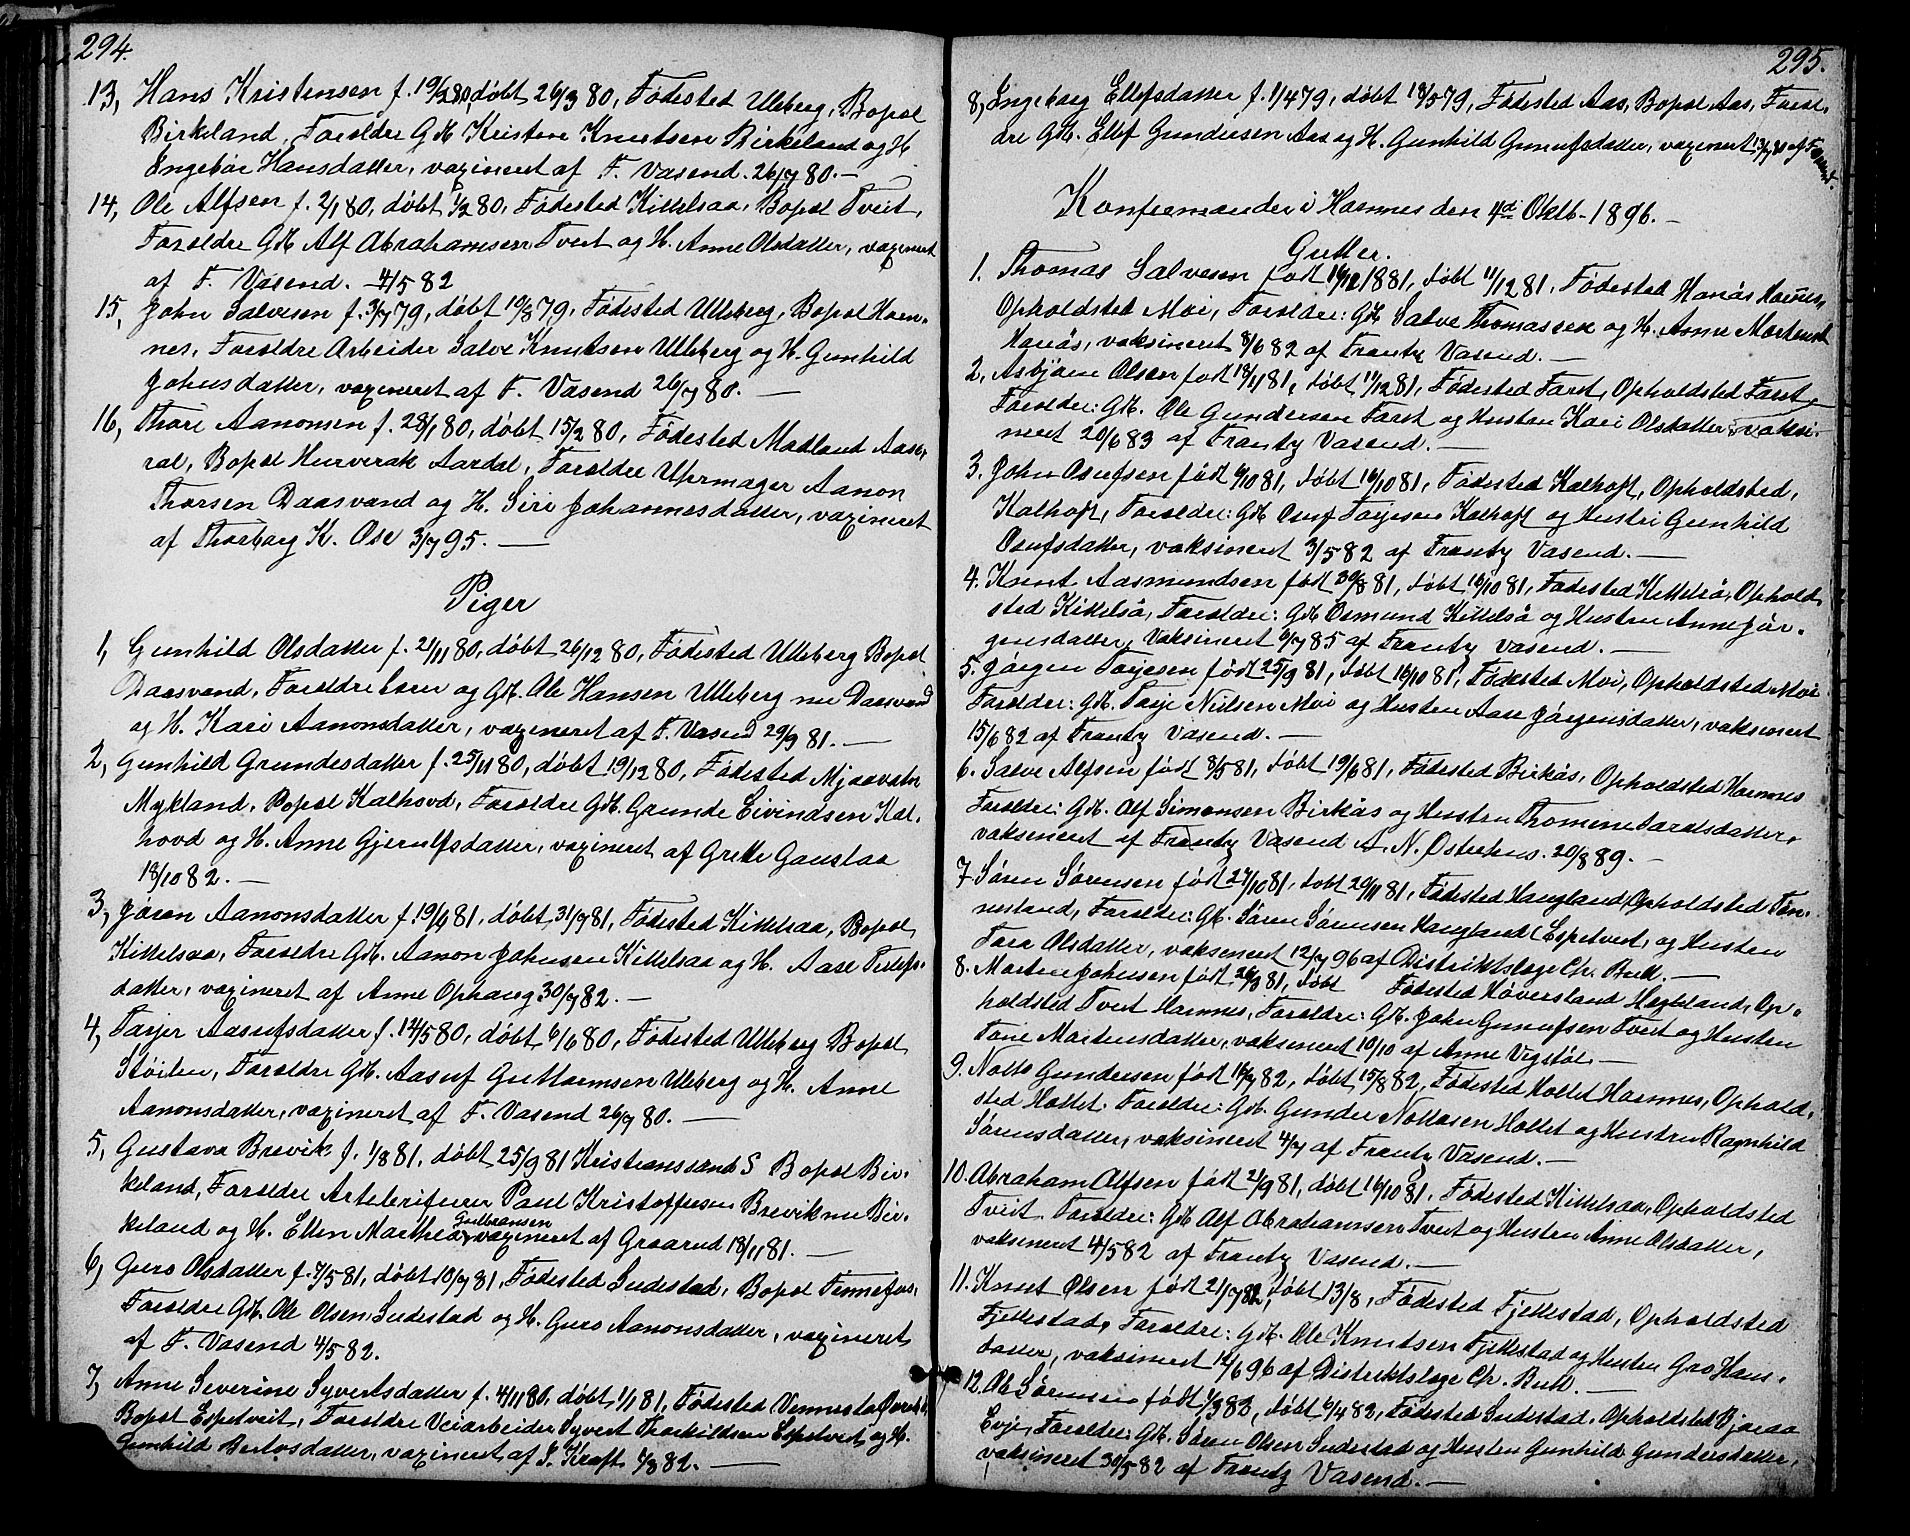 294.
13, Hans Kristensen f. 19/2 80, døbt 26/3 80, Fødested Uleberg, Bopæl
Birkeland, Foreldre Gdb Kristen Knutsen Birkeland og H
Engebor Hansdatter, vaxineret af F. Vasend. 26/7 80. —
14, Ole Alfsen f. 2/1 80, døbt 1/2 80, Fødested Kittelsaa, Bopæl Tveit,
Foreldre Gdb Alf Abrahamsen Tveit og H. Anne Olsdatter, vaxineret
af F. Vasend. 4/5 82
15, John Salvesen f. 3/7 79, døbt 10/8 79, Fødested Uleberg, Bopæl Hoen-
nes, Foreldre Arbeider Salve Knutsen Uleberg og H. Gunhild
Johnsdatter, vaxineret af F. Vasend 26/7 80. —
16, Thore Aanonsen f. 28/1 80, døbt 15/2 80, Fødested Madland Aase-
ral, Bopæl Hurverak Aardal, Foreldre Uhrmager Aanon
Thorsen Daasvand og H. Siri Johannesdatter, vaxineret
af Thorborg K. Ose 3/7 95. —
Piger
1, Gunhild Olsdatter f. 21/11 80, døbt 26/12 80, Fødested Uleberg Bopæl
Daasvand, Foreldre og Gdb. Ole Hansen Uleberg nu Daasvand
og H. Kari Aanonsdatter, vaxineret af F. Vasend 29/9 81. —
2, Gunhild Grundesdatter f. 25/11 80, døbt 19/12 80, Fødested Mjaavatn
Mykland, Bopæl Kalhovd, Foreldre Gdb. Grunde Eivindsen Kal-
hovd og H. Anne Gjerulfsdatter, vaxineret af Grethe Gaustaa
18/10 82. —
3, Jøren Aanonsdatter f. 19/4 81, døbt 31/7 81, Fødested Kittelsaa, Bopæl
Kittelsaa, Foreldre Gdb. Aanon Johnsen Kittelsaa og H. Aase Tellefs-
datter, vaxineret af Anne Ophaug 30/7 82. —
4, Tarjer Aasufsdatter f. 12/5 80, døbt 6/6 80, Fødested Uleberg Bopæl
Støilen, Foreldre Gdb. Aasuf Guttormsen Uleberg og H. Anne
Aanonsdatter, vaxineret af F. Vasend 26/7 80. —
5, Gustava Brevik f. 1/8 81, døbt 25/9 81 Kristianssand S Bopæl Bir-
keland, Foreldre Paul Kristoffersen Brevik nu Bir-
keland og H. Ellen Marthea Gulbransen vaxineret af Graarud 18/11 81. —
6, Guro Olsdatter f. 7/5 81, døbt 10/7 81, Fødested Sudestad, Bopæl Fennefos,
Foreldre Gdb. Ole Olsen Sudestad og H. Guro Aanonsdatter, vaxineret
af F. Vasend 4/5 82.
7, Anne Severine Syvertsdatter f. 4/11 80, døbt 1/1 81, Fødested Vennesla
Bopæl Espetveit, Foreldre Veiarbeider Syvert Thorkildsen Espetveit og H.
Gunhild Bertosdatter, vaxineret af J. Kraft 4/8 82. —
295.
8, Ingeborg Ellefsdatter f. 1/4 79, døbt 18/5 79, Fødested Aas, Bopæl Aas, Forel-
dre Gdb. Ellef Gundersen Aas og H. Gunhild Gunufsdatter, vaxineret 13/7 80 af F Vasend.
Konfirmander i Hornnes den 4de Oktb. 1896. —
Gutter.
1. Thomas Salvesen født 16/12 1881, døbt 11/12 81, Fødested Hanås Hornnes,
Opholdsted Moi, Foreldre: Gdb Salve Thomassen og H. Anne Mortensd
Hanås, vaksineret 8/6 82 af Frantz Vasend. —
2. Asbjørn Olsen født 18/11 81, døbt 11/12 81, Fødested Farst, Opholdsted Farst,
Foreldre: Gdb. Ole Gundersen Farst og Hustru Kari Olsdatter, vaksi-
neret 20/6 83 af Frantz Vasend. —
3. John Osufsen født 6/10 81, døbt 16/10 81, Fødested Kalhoft, Opholdsted,
Kalhoft, Foreldre: Gdb Osuf Tarjesen Kalhoft og Hustru Gunhild
Osufsdatter, vaksineret 3/5 82 af Frantz Vasend. —
4. Knut Aasmundsen født 30/8 81, døbt 16/10 81, Fødested Kittelså, Ophold-
sted Kittelså, Foreldre: Gdb Osmund Kittelså og Hustru Anne Jør-
gensdatter, Vaksineret 6/7 85 af Frantz Vasend. —
5. Jørgen Tarjesen født 25/9 81, døbt 16/10 81, Fødested Moi, Opholdsted Moi
Foreldre: Gdb. Tarje Nielsen Moi og Hustru Aase Jørgensdatter, vaksineret
15/6 82 af Frantz Vasend. —
6. Salve Alfsen født 8/5 81, døbt 19/6 81, Fødested Birkås, Opholdsted Hornnes
Foreldre: Gdb. Alf Simonsen Birkås og Hustru Thomine Taraldsdatter,
vaksineret af Frantz Vasend A. N. Østerhus. 20/8 89. —
7 Søren Sørensen født 27/10 81, døbt 20/11 81, Fødested Haugland, Opholdsted Fen-
nesland, Foreldre: Gdb. Søren Sørensen Haugland (Espetveit, og Hustru
Tora Olsdatter, vaksineret 12/7 96 af Distriktslæge Chr. Bull. —
8. Morten Johnsen født 26/3 81, døbt Fødested Høversland Hægeland, Op-
holdsted Tveit Hornnes, Foreldre: Gdb. John Gunufsen Tveit og Hustru
Tone Mortensdatter, vaksineret 10/10 af Anne Vegstøl. —
9. Notto Gundersen født 16/7 82, døbt 15/8 82, Fødested Hottet Hornnes, Ophold-
sted Hottet. Foreldre: Gdb. Gunder Nottosen Hottet og Hustru Ragnhild
Sørensdatter, vaksineret 4/7 af Frantz Vasend. —
10. Abraham Alfsen født 21/9 81, døbt 16/10 81, Fødested Kittelsaa, Opholdsted
Tveit Foreldre: Gdb Alf Abrahamsen Tveit og Hustru Anne Olsdatter,
vaksineret 4/5 82 af Frantz Vasend. —
11. Knut Olsen født 21/7 82, døbt 13/8, Fødested Fjellestad, Opholdsted
Fjellestad, Foreldre: Gdb. Ole Knutsen Fjellestad og Hustru Gro Hans-
datter, vaksineret 12/6 96 af Distriktslæge Ch. Bull. —
12. Ole Sørensen født 1/3 82, døbt 6/4 82, Fødested Sudestad, Opholdsted Bjoraa
Evje, Foreldre: Gdb. Søren Olsen Sudestad og Hustru Gunhild Gundersdatter,
vaksineret 30/5 82 af Frantz Vasend. —